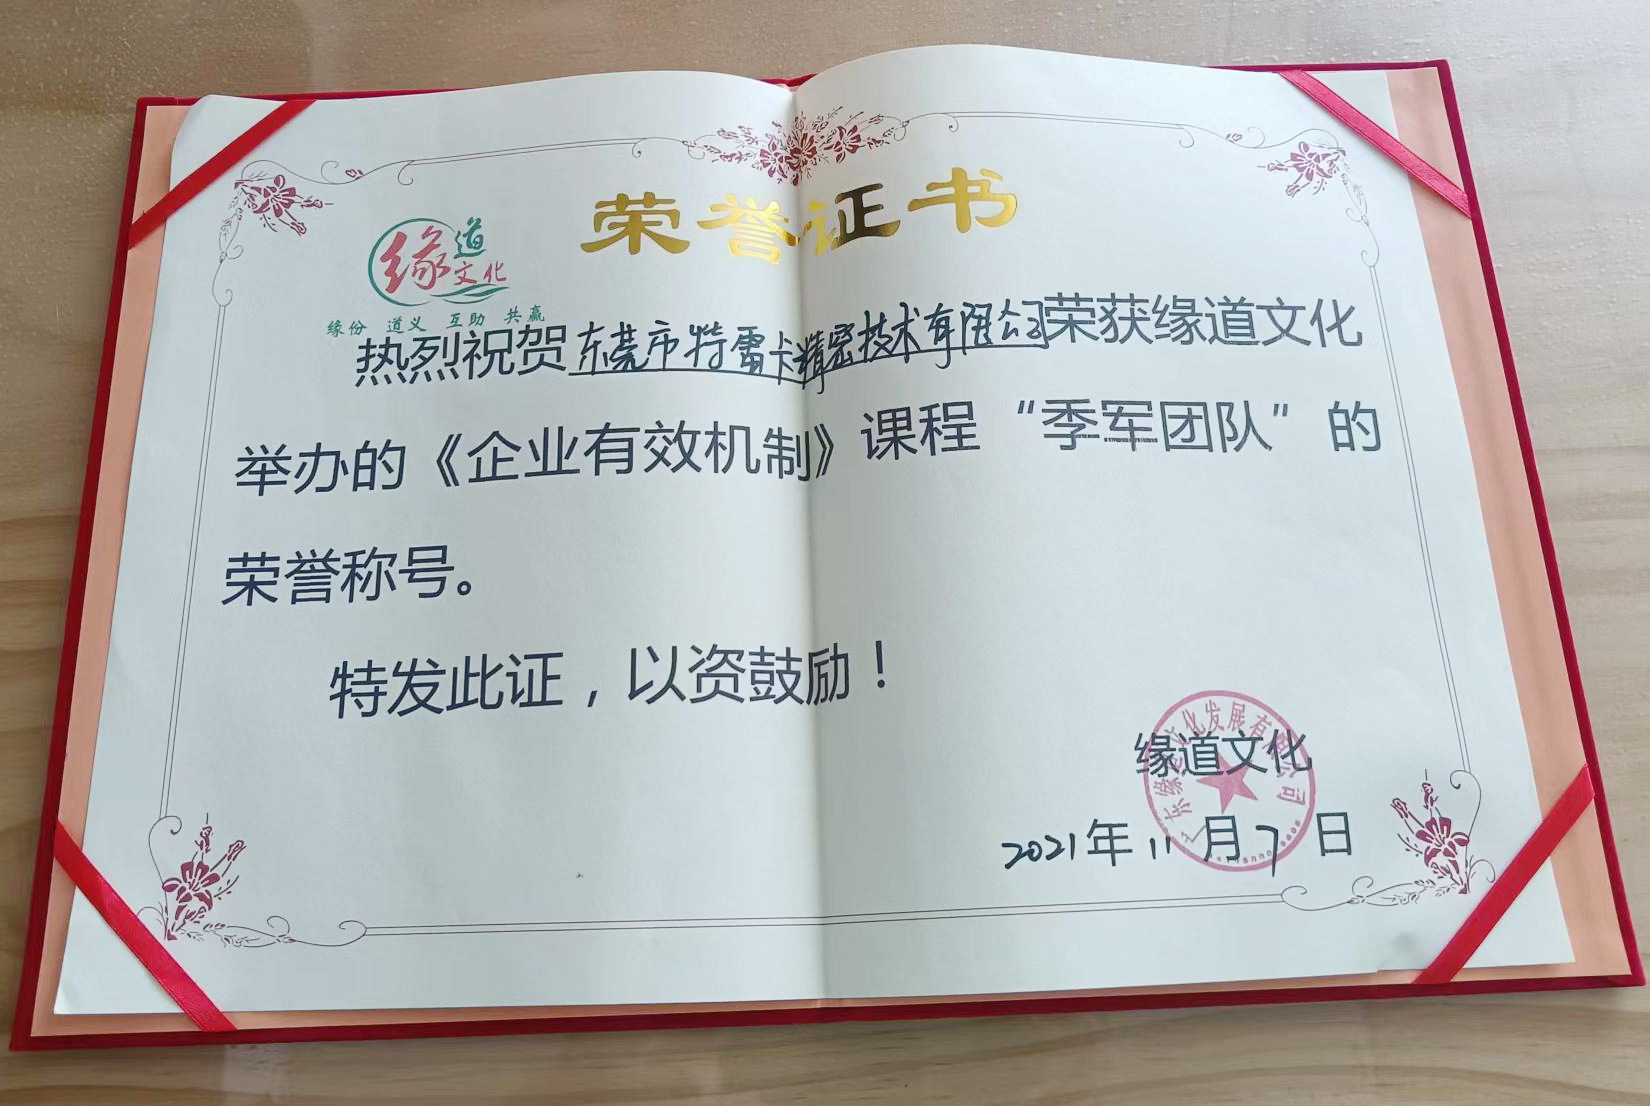 荣誉证书
缘道文化
缘份 道义 互助 共赢
热烈祝贺东莞市特雷卡精密技术有限公司荣获缘道文化
举办的《企业有效机制》课程“季军团队”的
荣誉称号。
特发此证，以资鼓励！
缘道文化
广东缘道文化发展有限公司
2021年11月7日